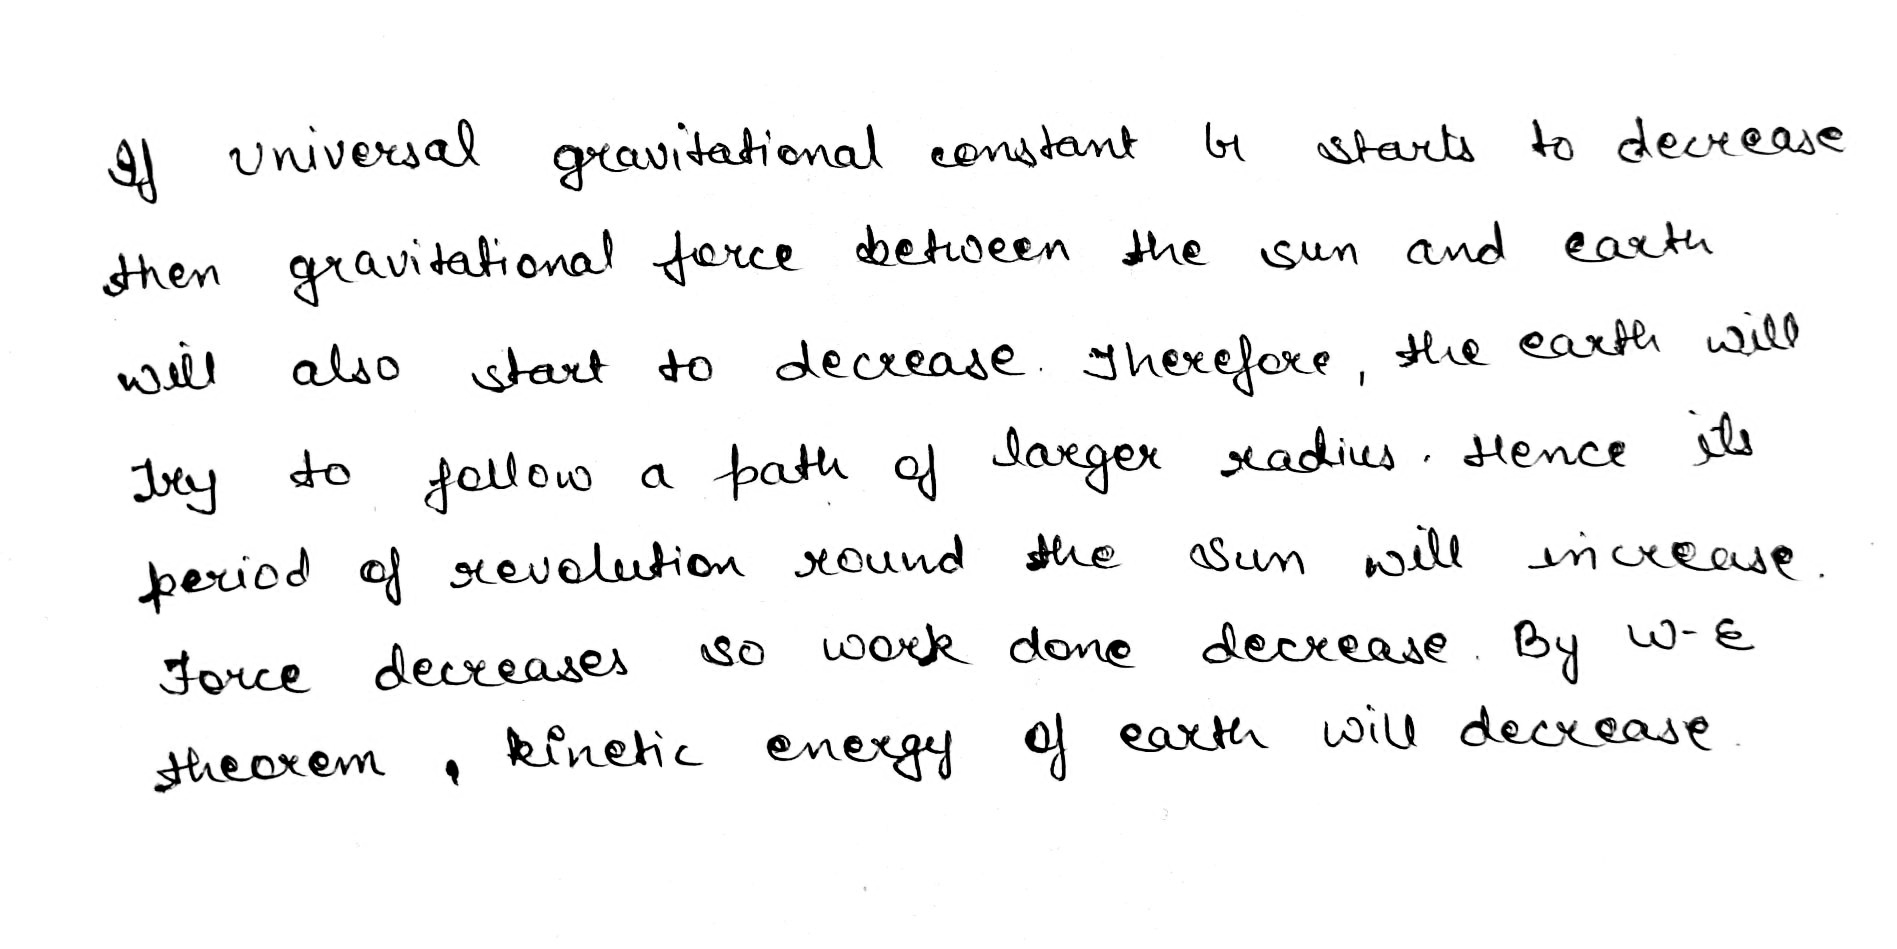 If universal gravitational constant G starts to decrease
then gravitational force between the sun and earth
will also start to decrease. Therefore, the earth will
try to follow a path of larger radius. Hence its
period of revolution round the sun will increase.
Force decreases so work done decrease. By W-E
theorem, kinetic energy of earth will decrease.